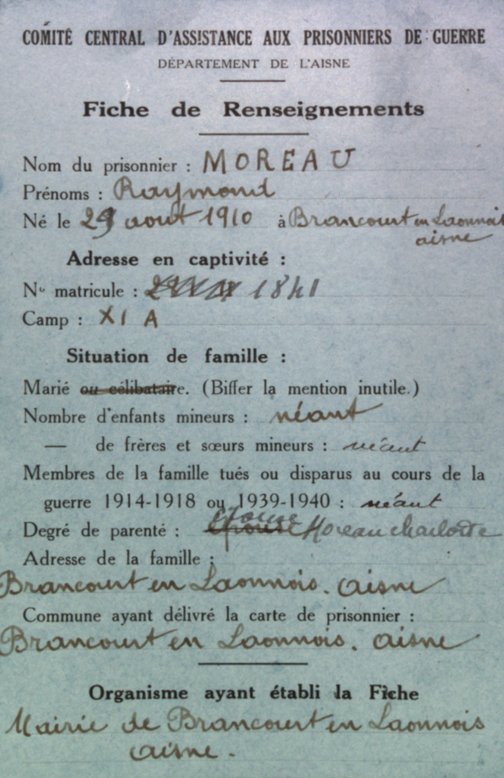 COMITÉ CENTRAL D'ASSISTANCE AUX PRISONNIERS DE GUERRE
DÉPARTEMENT DE L'AISNE
Fiche de Renseignements
Nom du prisonnier : MOREAU
Prénoms : Raymond
Né le 29 aout 1910 à Brancourt en Laonnois
aisne
Adresse en captivité :
N° matricule : 1841
Camp : XI A
Situation de famille :
Marié ou célibataire. (Biffer la mention inutile.)
Nombre d'enfants mineurs : néant
— de frères et sœurs mineurs : néant
Membres de la famille tués ou disparus au cours de la
guerre 1914-1918 ou 1939-1940 : néant
Degré de parenté : épouse Moreau charlotte
Adresse de la famille :
Brancourt en Laonnois. aisne
Commune ayant délivré la carte de prisonnier :
Brancourt en Laonnois. aisne
Organisme ayant établi la Fiche
Mairie de Brancourt en Laonnois
aisne.